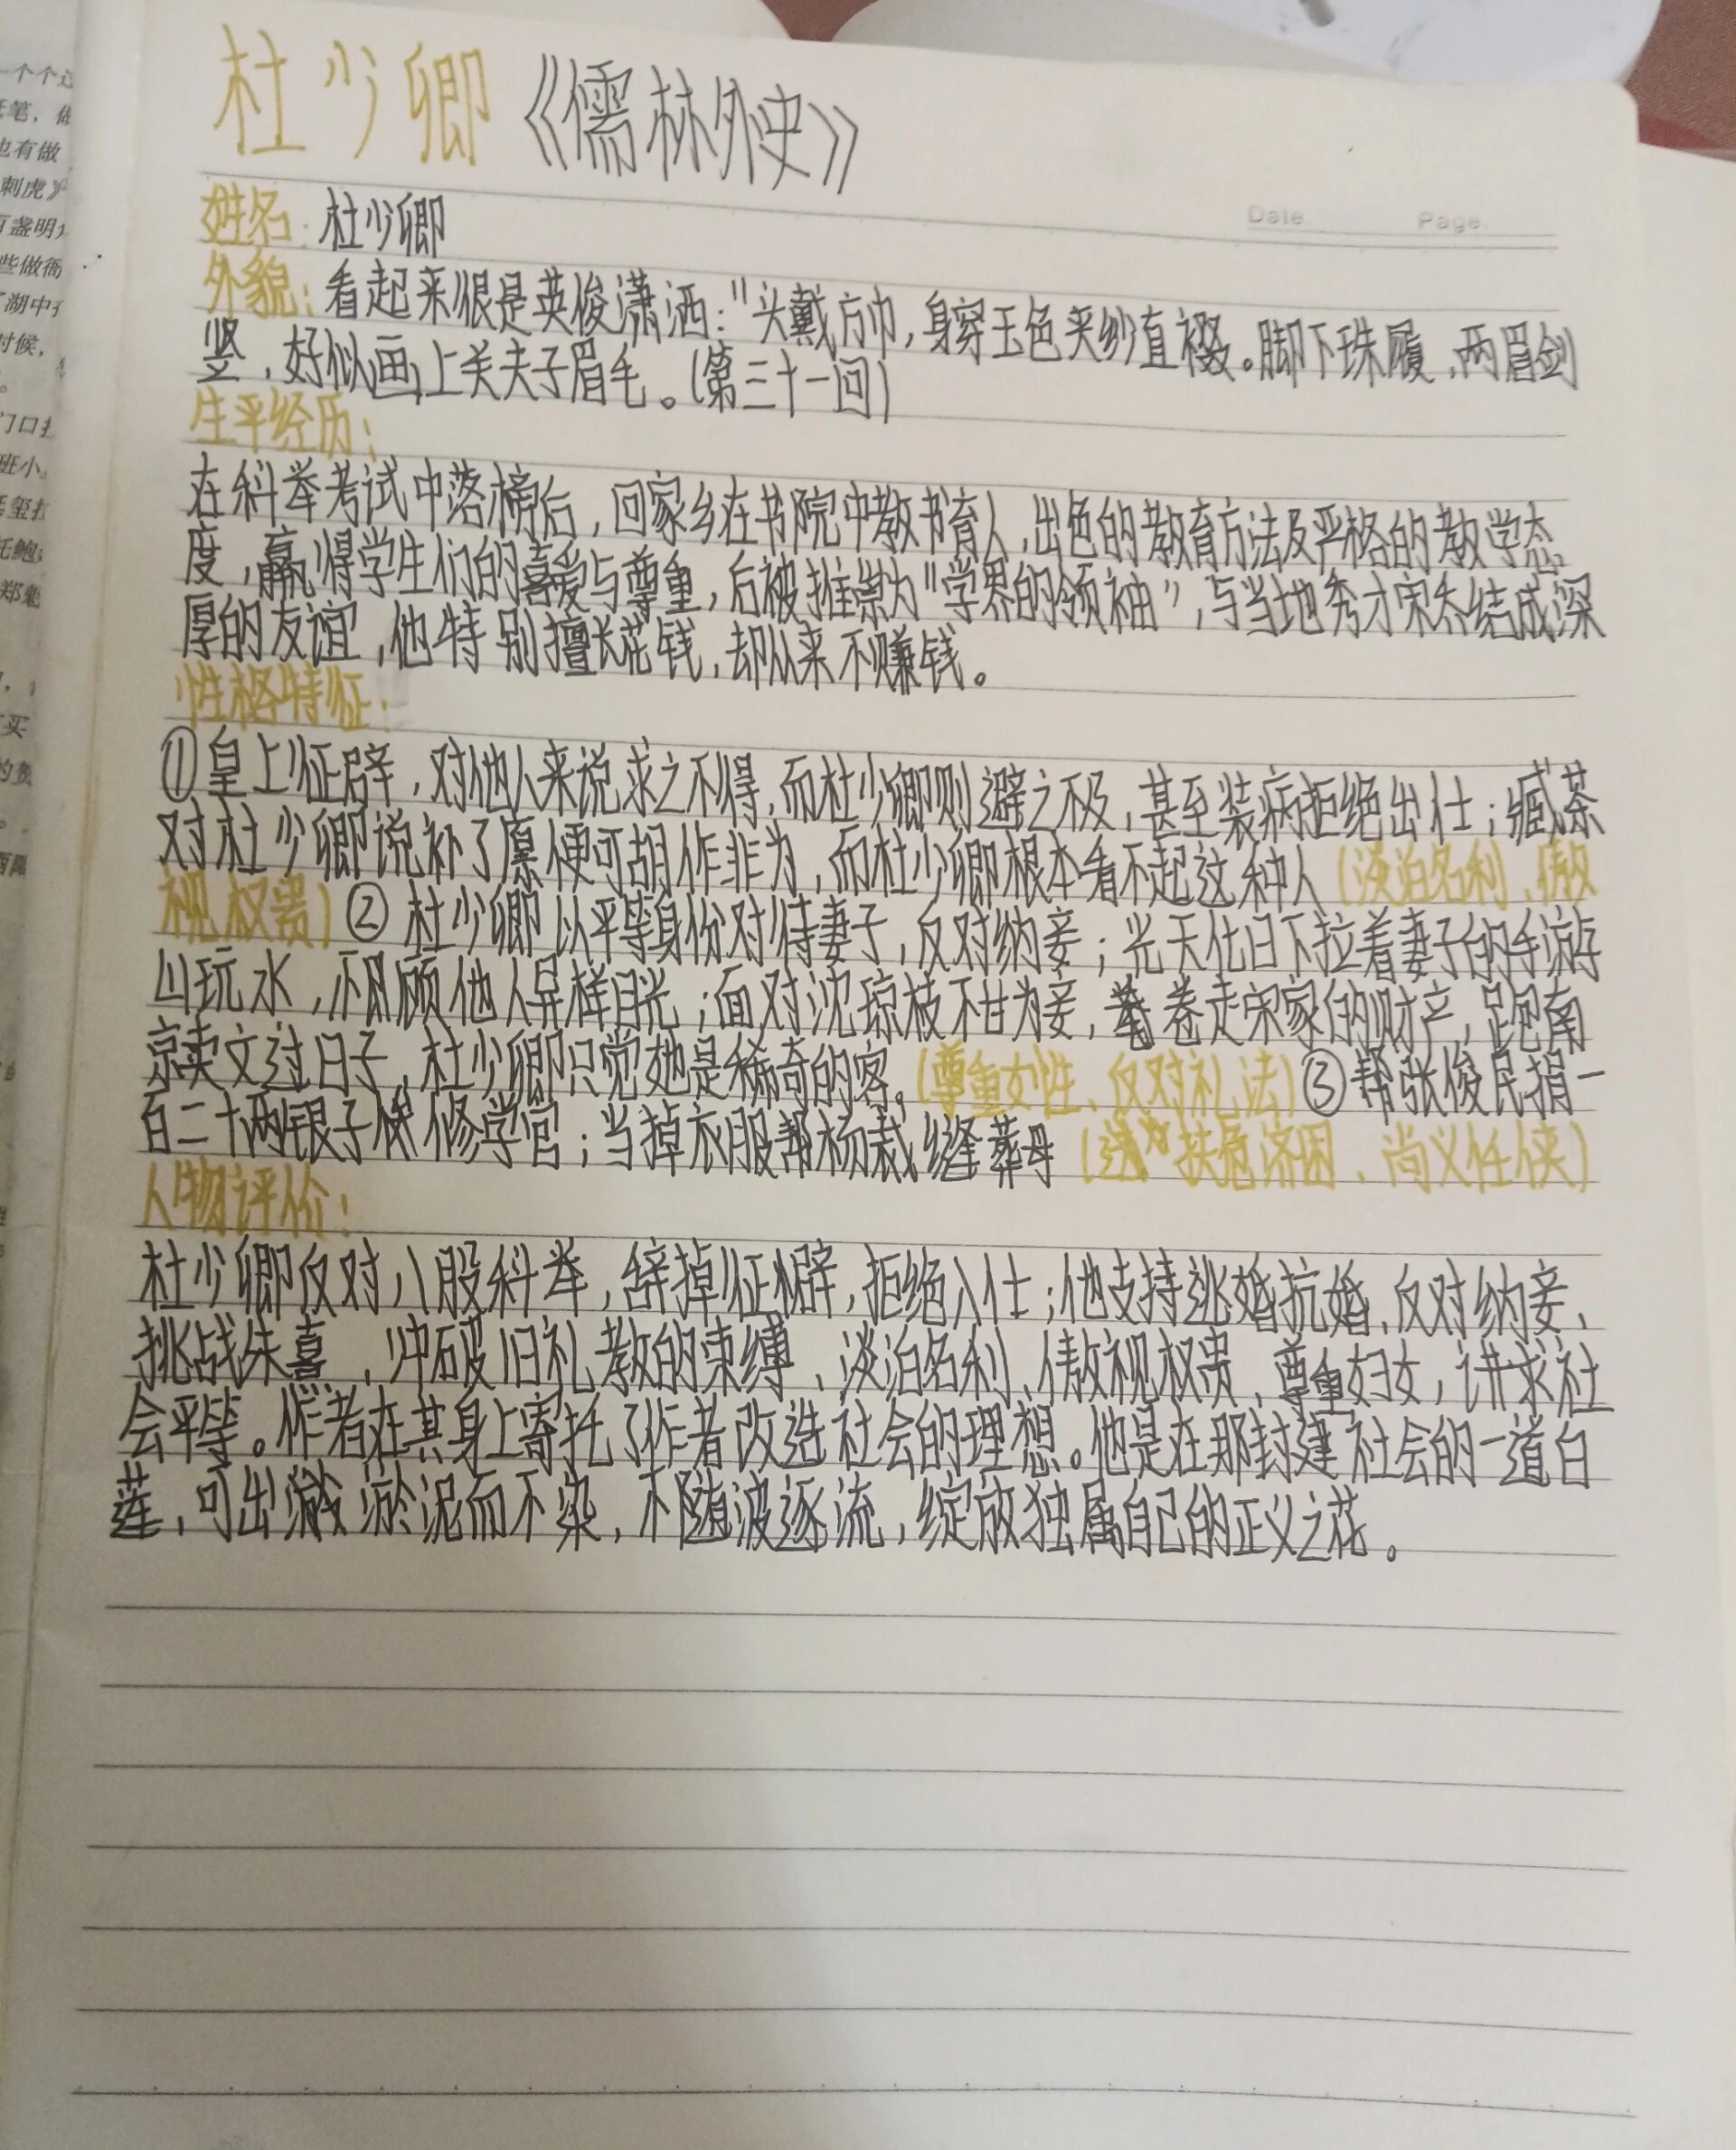 杜少卿《儒林外史》
Date. Page.
姓名：杜少卿
外貌：看起来很是英俊潇洒："头戴方巾，身穿玉色夹纱直裰。脚下珠履、两眉剑
竖，好似画上关夫子眉毛。(第三十一回)
生平经历：
在科举考试中落榜后，回家乡在书院中教书育人，出色的教育方法及严格的教学态
度，赢得学生们的喜爱与尊重，后被推崇为"学界的领袖"，与当地秀才宋杰结成深
厚的友谊，他特别擅长花钱，却从来不赚钱。
性格特征：
①皇上征辟，对他人来说求之不得，而杜少卿则避之不及，甚至装病拒绝出仕；臧荼
对杜少卿说补了廪便可胡作非为，而杜少卿根本看不起这种人(淡泊名利、傲
视权贵)②杜少卿以平等身份对待妻子，反对纳妾；光天化日下拉着妻子的手游
山玩水，不顾他人异样目光；面对沈琼枝不甘为妾，卷走宋家的财产，跑南
京卖文过日子，杜少卿只觉她是稀奇的客。(尊重女性、反对礼法)③帮张俊民捐一
百二十两银子修学宫；当掉衣服帮杨裁缝葬母(扶危济困、尚义任侠)
人物评价：
杜少卿反对八股科举，辞掉征辟，拒绝入仕；他支持逃婚抗婚、反对纳妾、
挑战朱熹，冲破旧礼教的束缚、淡泊名利、傲视权贵、尊重妇女，讲求社
会平等。作者在其身上寄托了作者改造社会的理想。他是在那封建社会的一道白
莲，可出淤泥而不染，不随波逐流，绽放独属自己的正义之花。